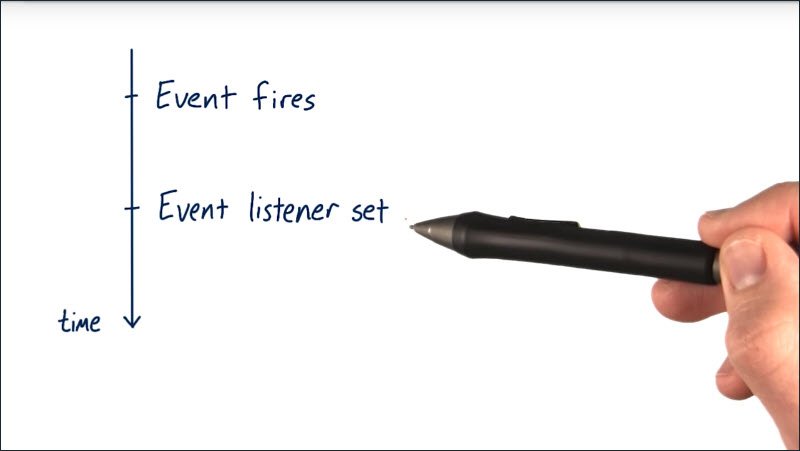 Event fires
Event listener set
time